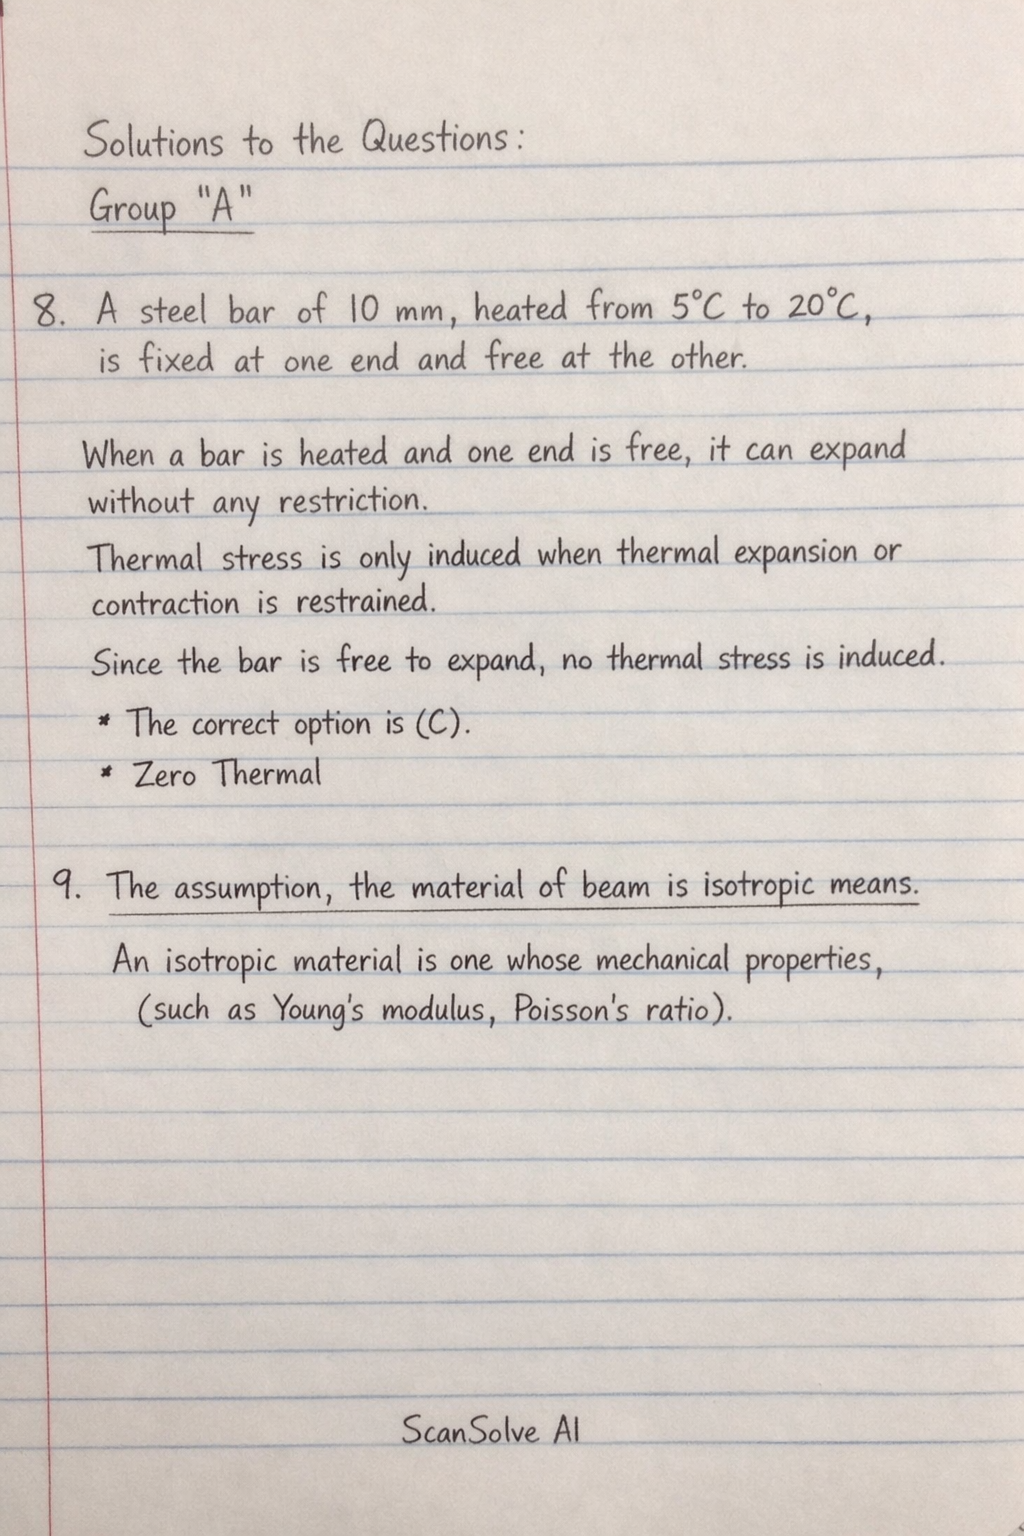 Solutions to the Questions:
Group "A"
8. A steel bar of 10 mm, heated from 5°C to 20°C,
is fixed at one end and free at the other.
When a bar is heated and one end is free, it can expand
without any restriction.
Thermal stress is only induced when thermal expansion or
contraction is restrained.
Since the bar is free to expand, no thermal stress is induced.
* The correct option is (C).
* Zero Thermal
9. The assumption, the material of beam is isotropic means.
An isotropic material is one whose mechanical properties,
(such as Young's modulus, Poisson's ratio).
ScanSolve AI